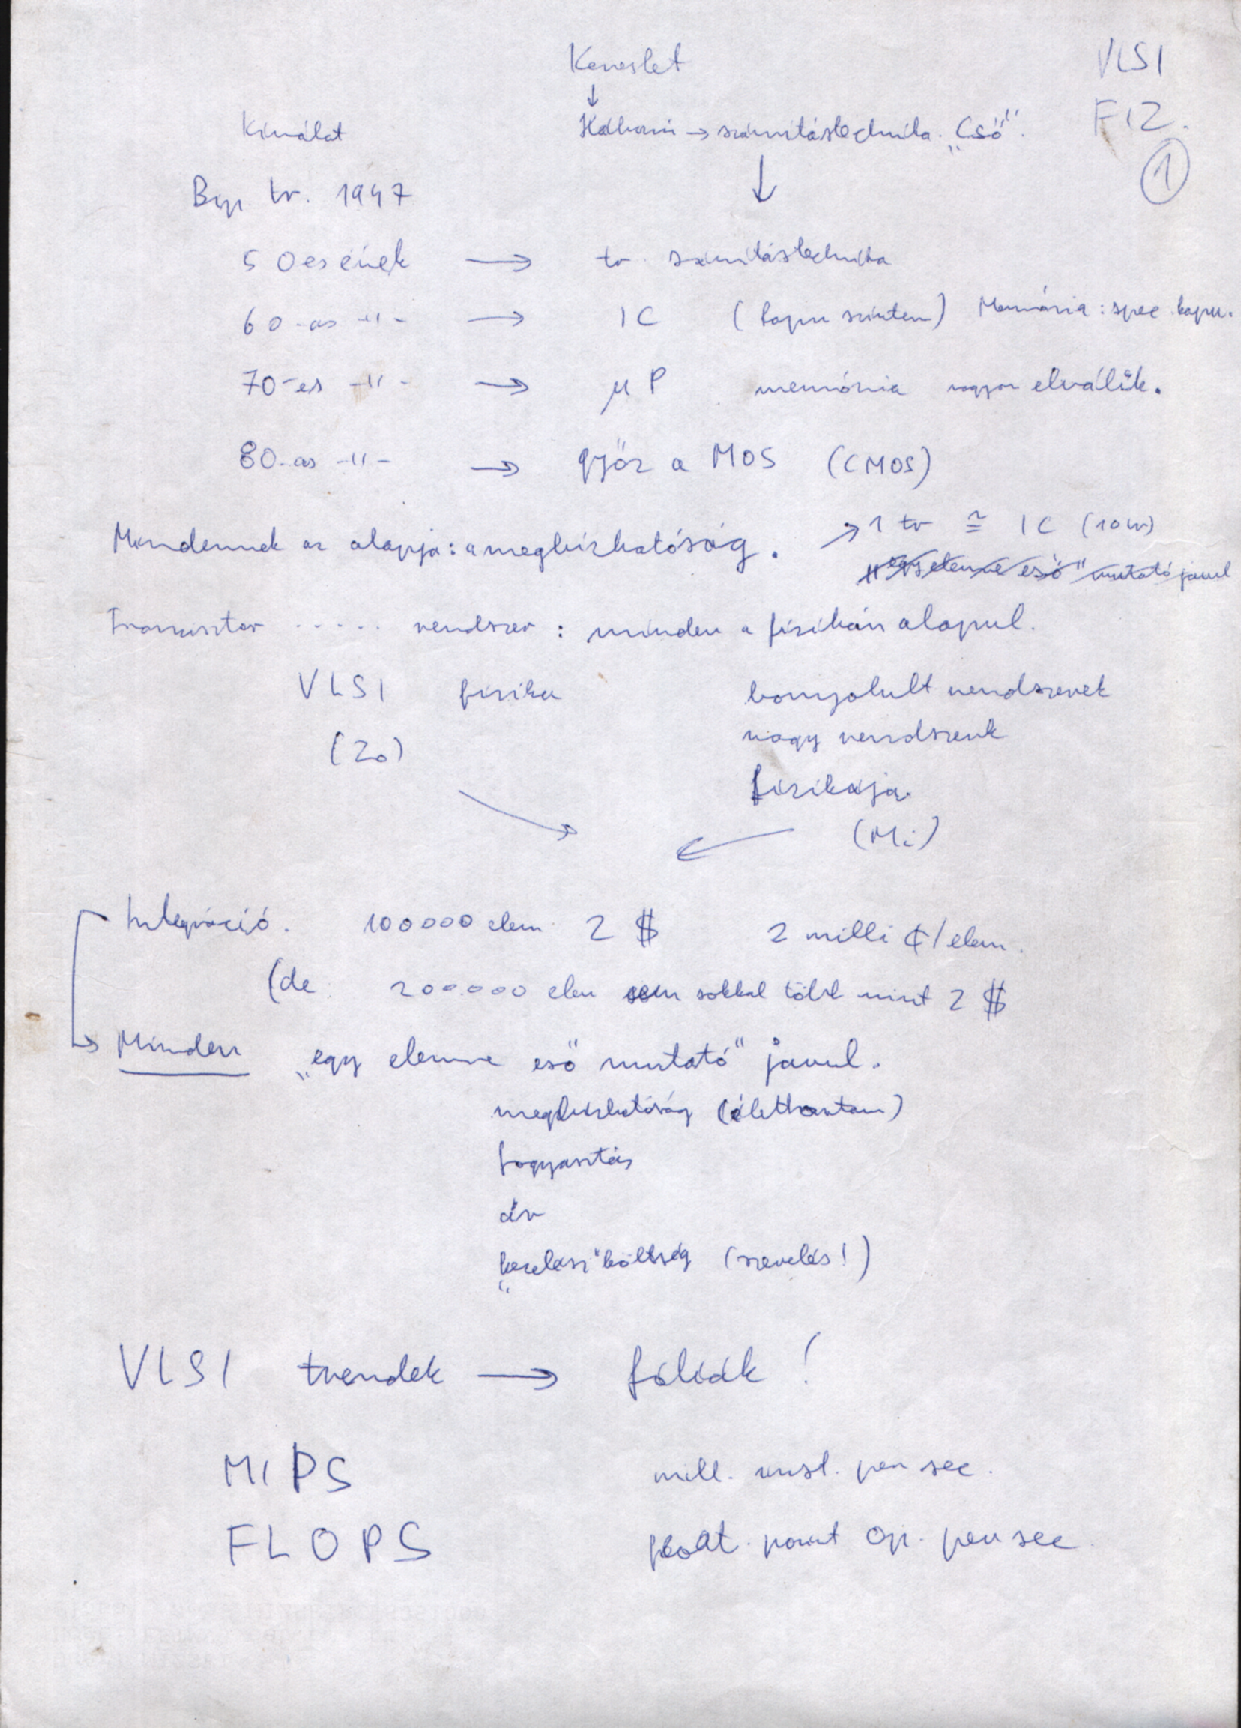 Kereslet VLSI
↓
Kínálat Háború → számítástechnika „Cső" FIZ.
①
↓
Bip tr. 1947
50es évek → tr. számítástechnika
60-as -"- → IC (kapu szinten) Memória: spec. kapu.
70-es -"- → μP memória nagyon elválik.
80-as -"- → győz a MOS (CMOS)
Mindennek az alapja: a megbízhatóság. → 1 tr ≅ IC (10 tr)
„egy elemre eső" mutató javul
Tranzisztor ..... rendszer : minden a fizikán alapul.
VLSI fizika bonyolult rendszerek
(Zo) nagy rendszerek
fizikája.
(Mi)
Integráció. 100000 elem 2 $ 2 milli ¢/elem.
(de 200000 elem sem sokkal több mint 2 $
Minden „egy elemre eső mutató" javul.
megbízhatóság (élettartam)
fogyasztás
ár
„kezelési" költség (szerelés!)
VLSI trendek → fóliák!
MIPS mill. inst. per sec.
FLOPS float. point op. per sec.